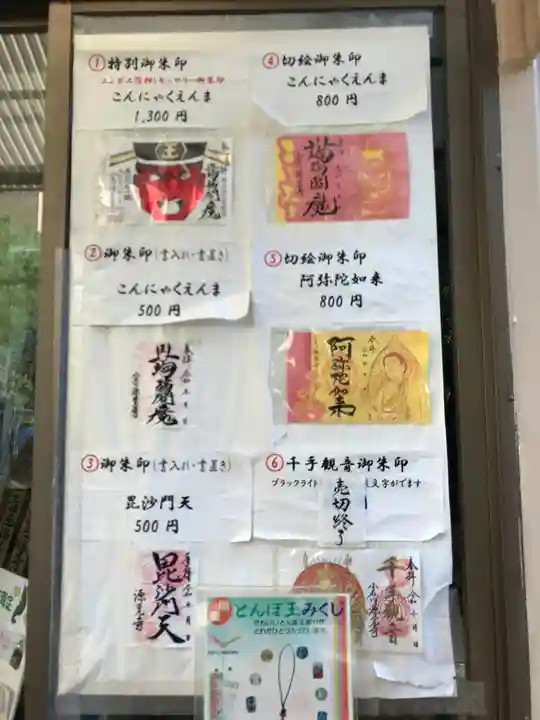 ①特別御朱印
こんにゃくえんま
1,300円
②御朱印(書入れ・書置き)
こんにゃくえんま
500円
③御朱印(書入れ・書置き)
毘沙門天
500円
毘沙門天
源覚寺
④切絵御朱印
こんにゃくえんま
800円
⑤切絵御朱印
阿弥陀如来
800円
奉拝
阿弥陀如来
⑥千手観音御朱印
ブラックライト
文字がでます
売切終了
奉拝
千手観音
とんぼ玉みくじ